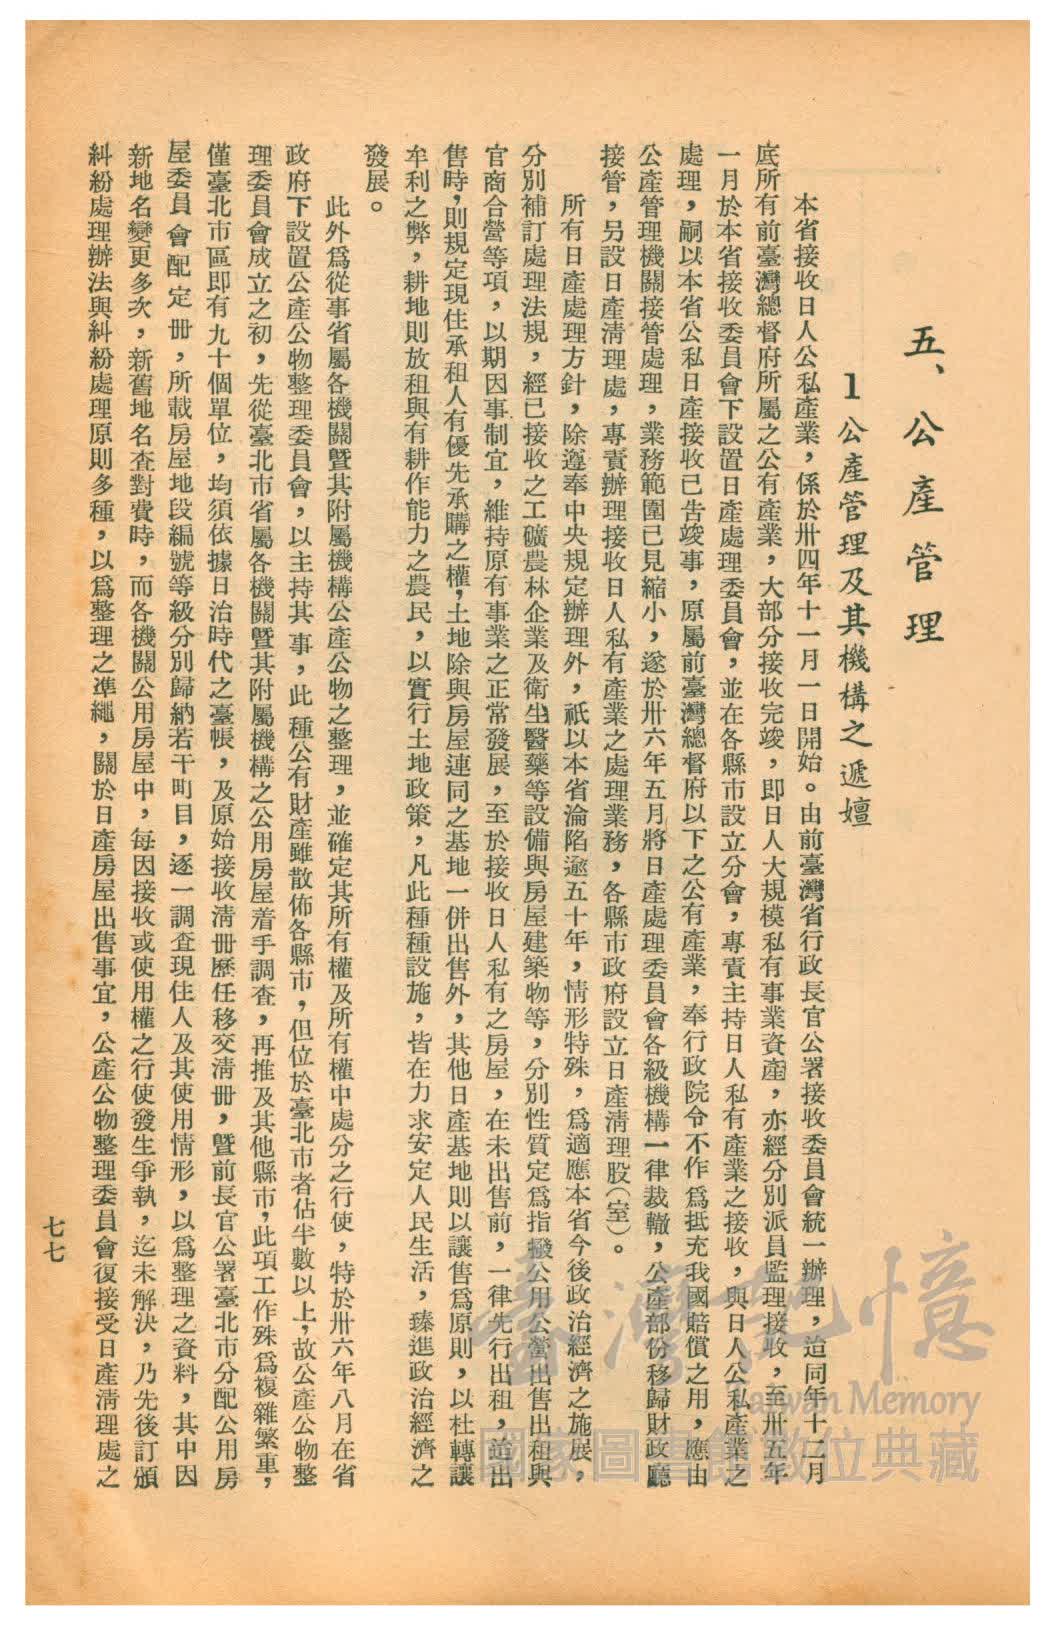 五、公產管理
1 公產管理及其機構之遞嬗
本省接收日人公私產業，係於卅四年十一月一日開始。由前臺灣省行政長官公署接收委員會統一辦理，迨同年十二月
底所有前臺灣總督府所屬之公有產業，大部分接收完竣，即日人大規模私有事業資產，亦經分別派員監理接收，至卅五年
一月於本省接收委員會下設置日產處理委員會，並在各縣市設立分會，專責主持日人私有產業之接收，與日人公私產業之
處理，嗣以本省公私日產接收已告竣事，原屬前臺灣總督府以下之公有產業，奉行政院令不作爲抵充我國賠償之用，應由
公產管理機關接管處理，業務範圍已見縮小，遂於卅六年五月將日產處理委員會各級機構一律裁轍，公產部份移歸財政廳
接管，另設日產清理處，專責辦理接收日人私有產業之處理業務，各縣市政府設立日產清理股(室)。
所有日產處理方針，除遵奉中央規定辦理外，祇以本省淪陷逾五十年，情形特殊，爲適應本省今後政治經濟之施展，
分別補訂處理法規，經已接收之工礦農林企業及衛生醫藥等設備與房屋建築物等，分別性質定爲指撥公用公營出售出租與
官商合營等項，以期因事制宜，維持原有事業之正常發展，至於接收日人私有之房屋，在未出售前，一律先行出租，迨出
售時，則規定現住承租人有優先承購之權，土地除與房屋連同之基地一併出售外，其他日產基地則以讓售爲原則，以杜轉讓
牟利之弊，耕地則放租與有耕作能力之農民，以實行土地政策，凡此種種設施，皆在力求安定人民生活，臻進政治經濟之
發展。
此外爲從事省屬各機關暨其附屬機構公產公物之整理，並確定其所有權及所有權中處分之行使，特於卅六年八月在省
政府下設置公產公物整理委員會，以主持其事，此種公有財產雖散佈各縣市，但位於臺北市者佔半數以上，故公產公物整
理委員會成立之初，先從臺北市省屬各機關暨其附屬機構之公用房屋着手調查，再推及其他縣市，此項工作殊爲複雜繁重，
僅臺北市區即有九十個單位，均須依據日治時代之臺帳，及原始接收清冊歷任移交清冊，暨前長官公署臺北市分配公用房
屋委員會配定冊，所載房屋地段編號等級分別歸納若干町目，逐一調查現住人及其使用情形，以爲整理之資料，其中因
新地名變更多次，新舊地名查對費時，而各機關公用房屋中，每因接收或使用權之行使發生爭執，迄未解決，乃先後訂頒
糾紛處理辦法與糾紛處理原則多種，以爲整理之準繩，關於日產房屋出售事宜，公產公物整理委員會復接受日產清理處之
七七
臺灣記憶
Taiwan Memory
國家圖書館數位典藏